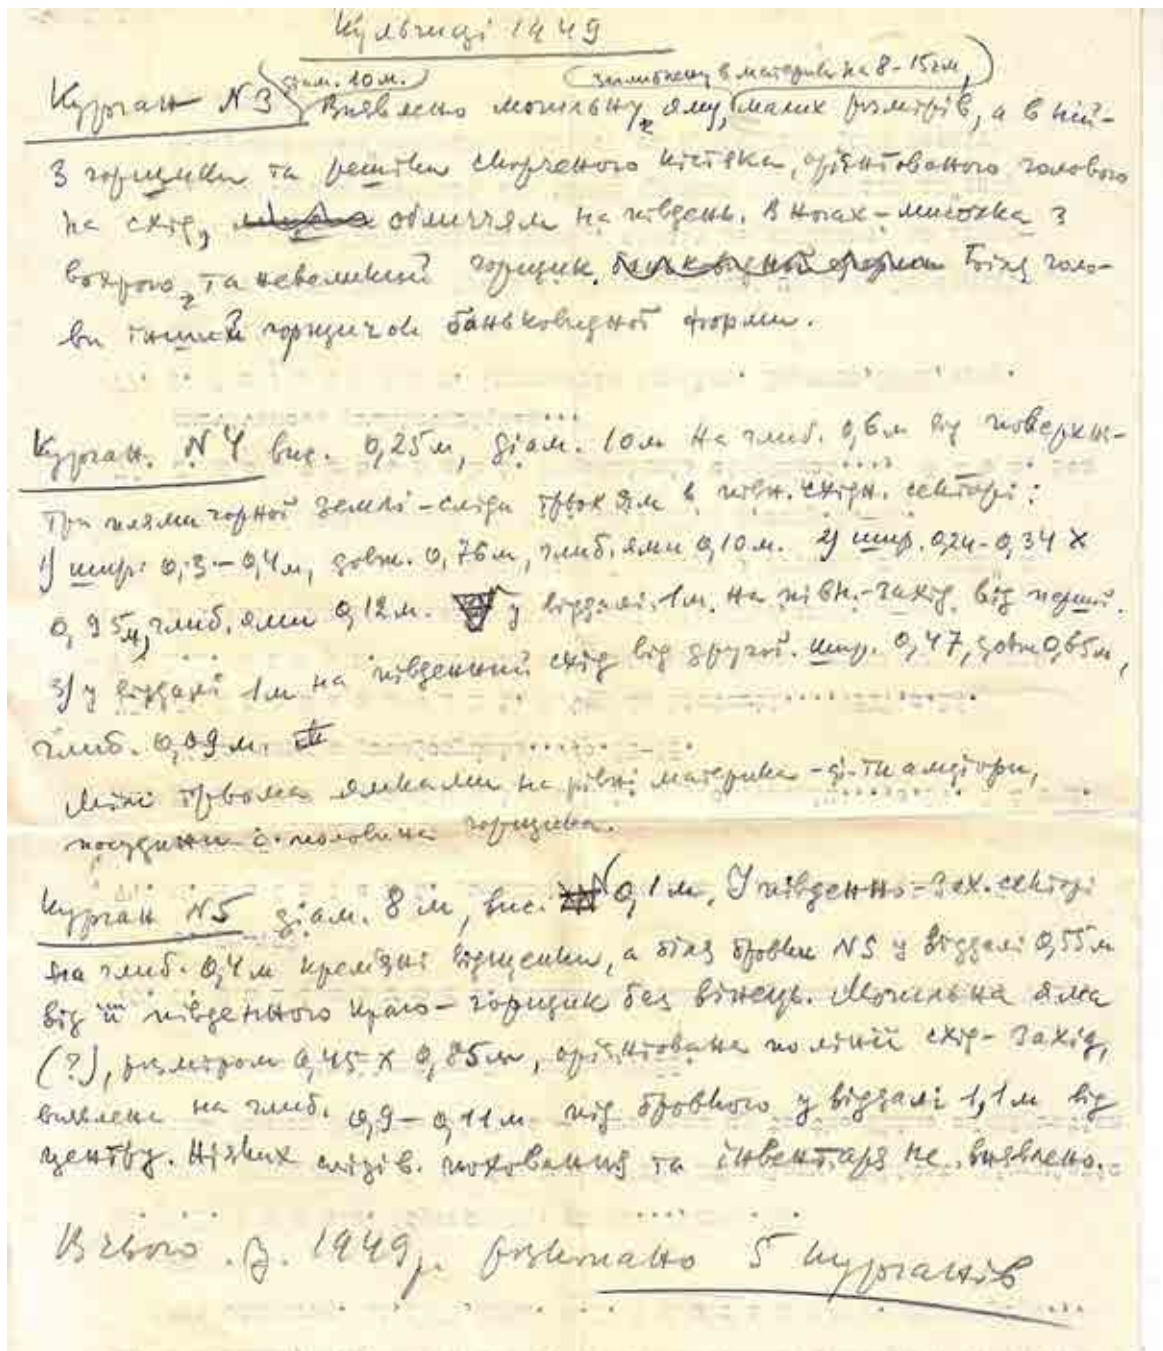 Кульчиці 1949
діам. 10 м. заглиблену в материк на 8-15 см,
Курган N 3 Виявлено могильну яму, малих розмірів, а в ній-
3 горщики та рештки скорченого кістяка, орієнтованого головою
на схід, обличчям на південь. В ногах – мисочка з
вохрою, та невеликий горщик. Біля голо-
ви інший горщичок баньковидної форми.
Курган N 4 вис. 0,25 м, діам. 10 м На глиб. 0,6 м від поверхні-
три плями чорної землі – сліди трьох ям в півн. східн. секторі:
1) шир. 0,3 – 0,4 м, довж. 0,76 м, глиб. ями 0,10 м. 2) шир. 0,24-0,34 x
0,95 м, глиб. ями 0,12 м. у віддалі 1 м. на півн.-захід від першої.
3) у віддалі 1 м на південний схід від другої. шир. 0,47, довж 0,65 м,
глиб. 0,09 м.
Між трьома ямками на рівні материка – амфори,
посудини і половина горщика.
Курган N5 діам. 8 м, вис. 0,1 м. У південно-зах. секторі
на глиб. 0,4 м крем'яні відщепки, а біля бровки N5 у віддалі 0,55 м
від її південного краю – горщик без вінець. Могильна яма
(?), розміром 0,45 x 0,85 м, орієнтована по лінії схід – захід,
виявлена на глиб. 0,9 – 0,11 м під бровкою у віддалі 1,1 м від
центру. Ніяких слідів поховання та інвентаря не виявлено.
Всього в 1949 р. розкопано 5 курганів